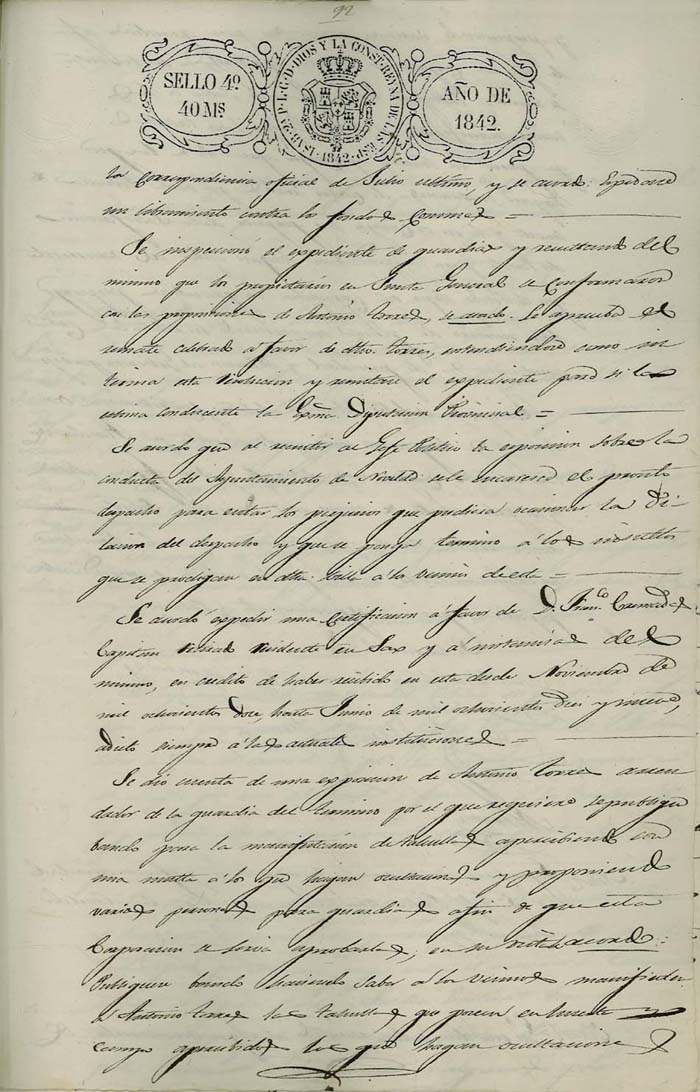 92
SELLO 4º
40 Ms
ISAB. 2ª P. L. G. D. DIOS Y LA CONST. REYNA DE LAS ESP.
1842
AÑO DE
1842.
la Correspondencia oficial de Julio ultimo, y se acordó: Expidase
un libramiento contra los fondos Comunes =
Se inspeccionó el expediente de guardias y resultando del
mismo que los propietarios en Junta General se Conformaron
con las proposiciones de Antonio Torres, se acordó: Se aprueba el
remate celebrado á favor de dho. Torres, entendiendose como in
terina esta resolucion y remitase el expediente para si lo
estima conducente la Exma. Diputacion Provincial =
Se acordó que al remitir al Gefe Politico la exposicion sobre la
conducta del Ayuntamiento de Novelda se le encarezca el pronto
despacho para evitar los perjuicios que pudiera ocasionar la di
lacion del despacho y que se ponga termino á los insultos
que se prodigan en dha. Villa á los vecinos de esta =
Se acordó expedir una Certificacion á favor de D. Franco.
Capitan retirado residente en Sax y á instancias del
mismo, en credito de haber residido en esta desde Noviembre de
mil ochocientos doce, hasta Junio de mil ochocientos diez y nueve,
adicto siempre á las actuales instituciones =
Se dió cuenta de una exposicion de Antonio Torres arren
dador de la guardia del termino por el que requiere se publique
bando para la manifestacion de tahullas apercibiendo con
una multa á los que hagan ocultaciones y proponiendo
varias personas para guardias afin de que esta
Corporacion se sirva aprobarlas; en su vista acordó:
Publiquese bando haciendo saber á los vecinos manifiesten
á Antonio Torres las tahullas que poseen en huerta y
campo apercibidos los que hagan ocultaciones